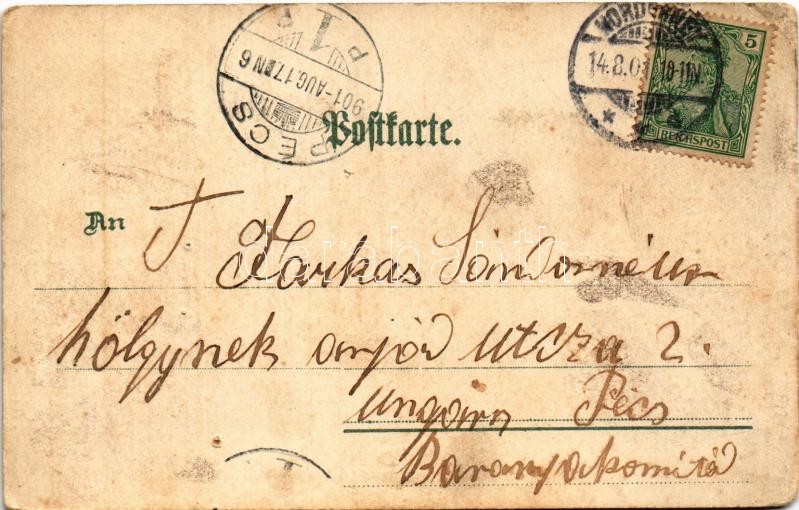 PÉCS
901-AUG.17.DN6
P 1 P
NORDERNEY
14.8.01 10-11V.
5
REICHSPOST
Postkarte.
An T. Farkas Sándornéum
hölgynek
utcza 2.
Ungarn Pécs
Baranyakomitá
darabanth